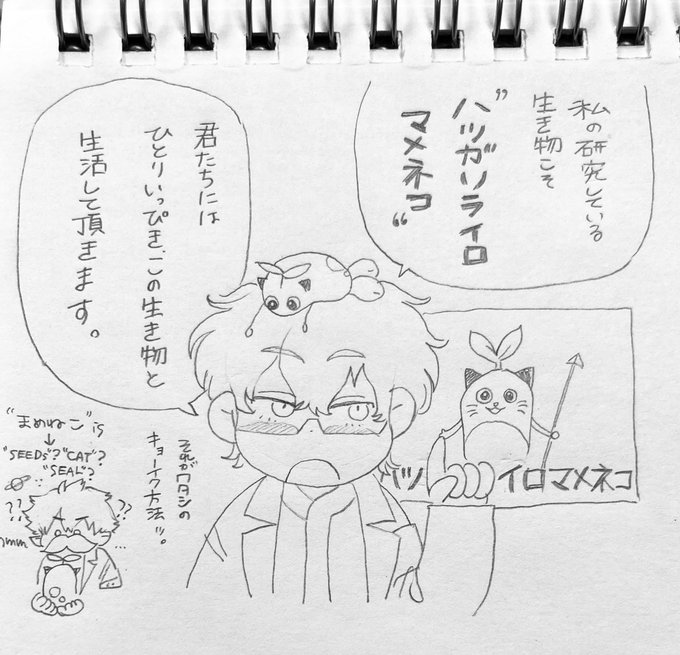 私の研究している
生き物こそ
"ハツガソライロ
マメネコ"
君たちには
ひとりいっぴき、この生き物と
生活して頂きます。
ハツ イロマメネコ
それがワタシの
キョーイク方法ッ。
"まめねこ" is
↓
"SEEDS"? "CAT"?
"SEAL"?
??
??